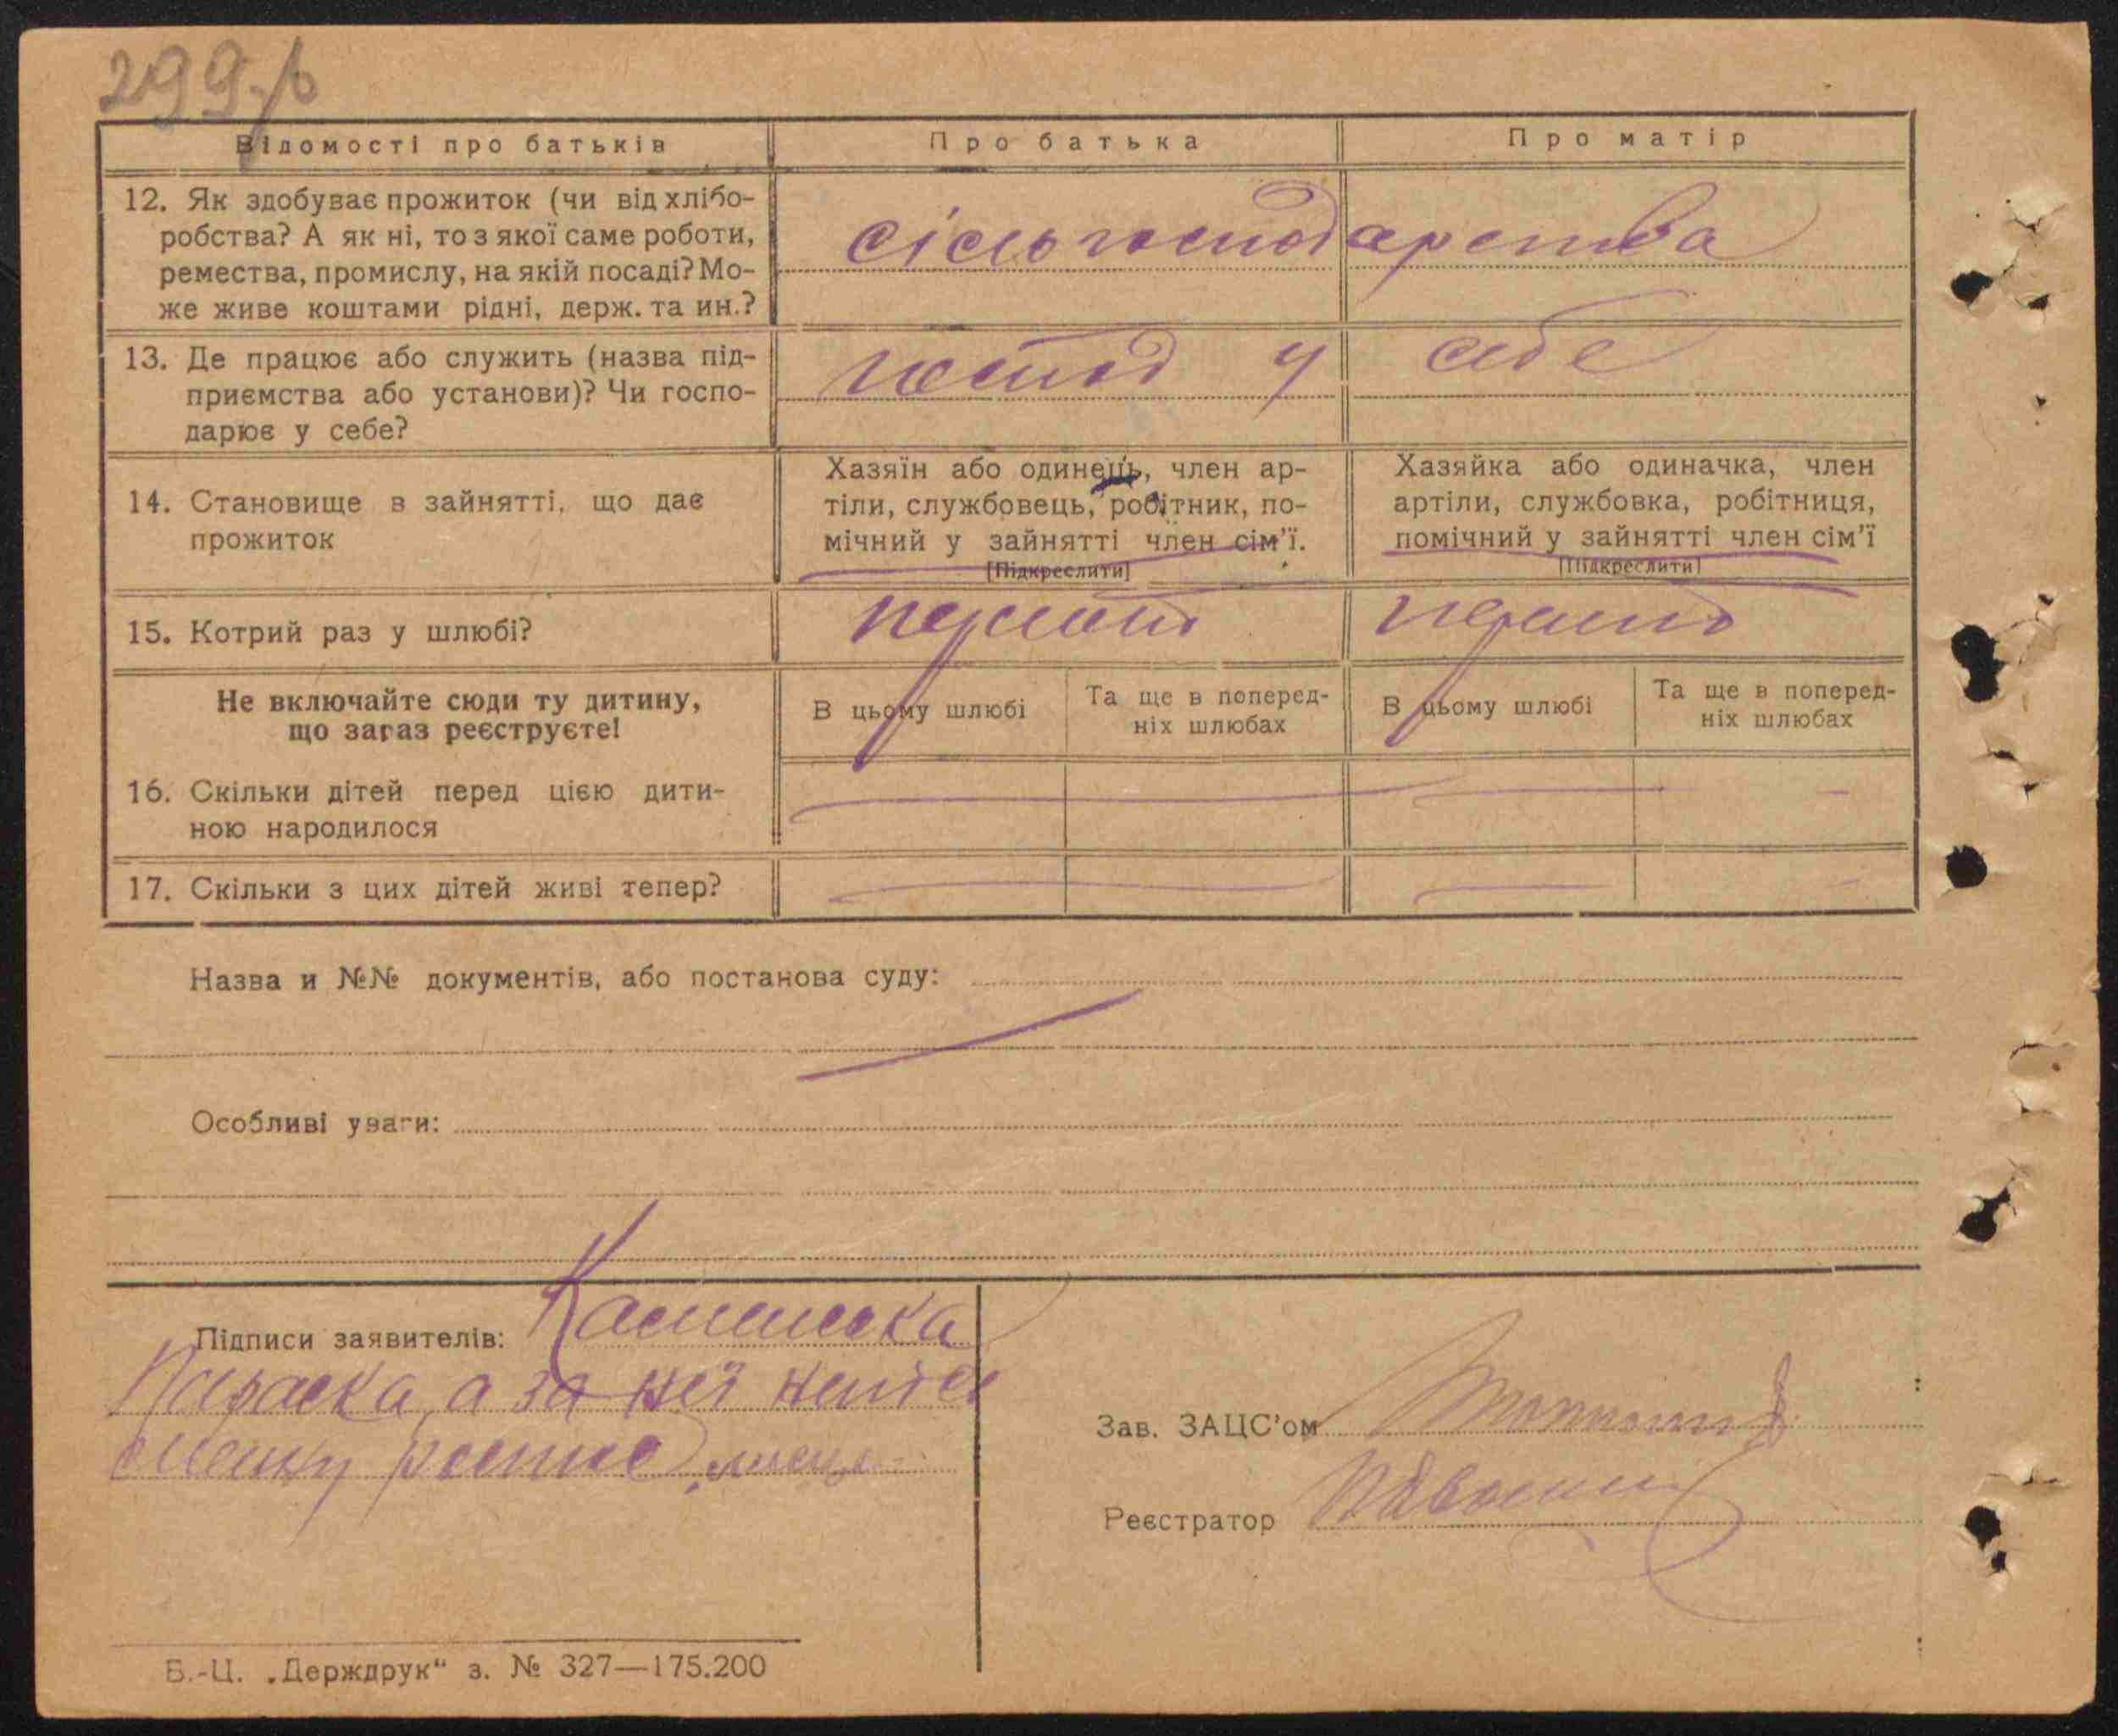 299
Відомості про батьків
Про батька
Про матір
12. Як здобуває прожиток (чи від хлібо-
робства? А як ні, то з якої саме роботи,
ремества, промислу, на якій посаді? Мо-
же живе коштами рідні, держ. та ин.?
сільгосподарства
13. Де працює або служить (назва під-
приємства або установи)? Чи госпо-
дарює у себе?
господ у себе
14. Становище в зайнятті, що дає
прожиток
Хазяїн або одинець, член ар-
тіли, службовець, робітник, по-
мічний у зайнятті член сім'ї.
[Підкреслити]
Хазяйка або одиначка, член
артіли, службовка, робітниця,
помічний у зайнятті член сім'ї
[Підкреслити]
15. Котрий раз у шлюбі?
Не включайте сюди ту дитину,
що зараз реєструєте!
В цьому шлюбі
Та ще в поперед-
ніх шлюбах
В цьому шлюбі
Та ще в поперед-
ніх шлюбах
16. Скільки дітей перед цією дити-
ною народилося
17. Скільки з цих дітей живі тепер?
Назва и №№ документів, або постанова суду:
Особливі уваги:
Підписи заявителів:
Параска, а за неї
Зав. ЗАЦС'ом
Реєстратор
Б.-Ц. „Держдрук“ з. № 327—175.200